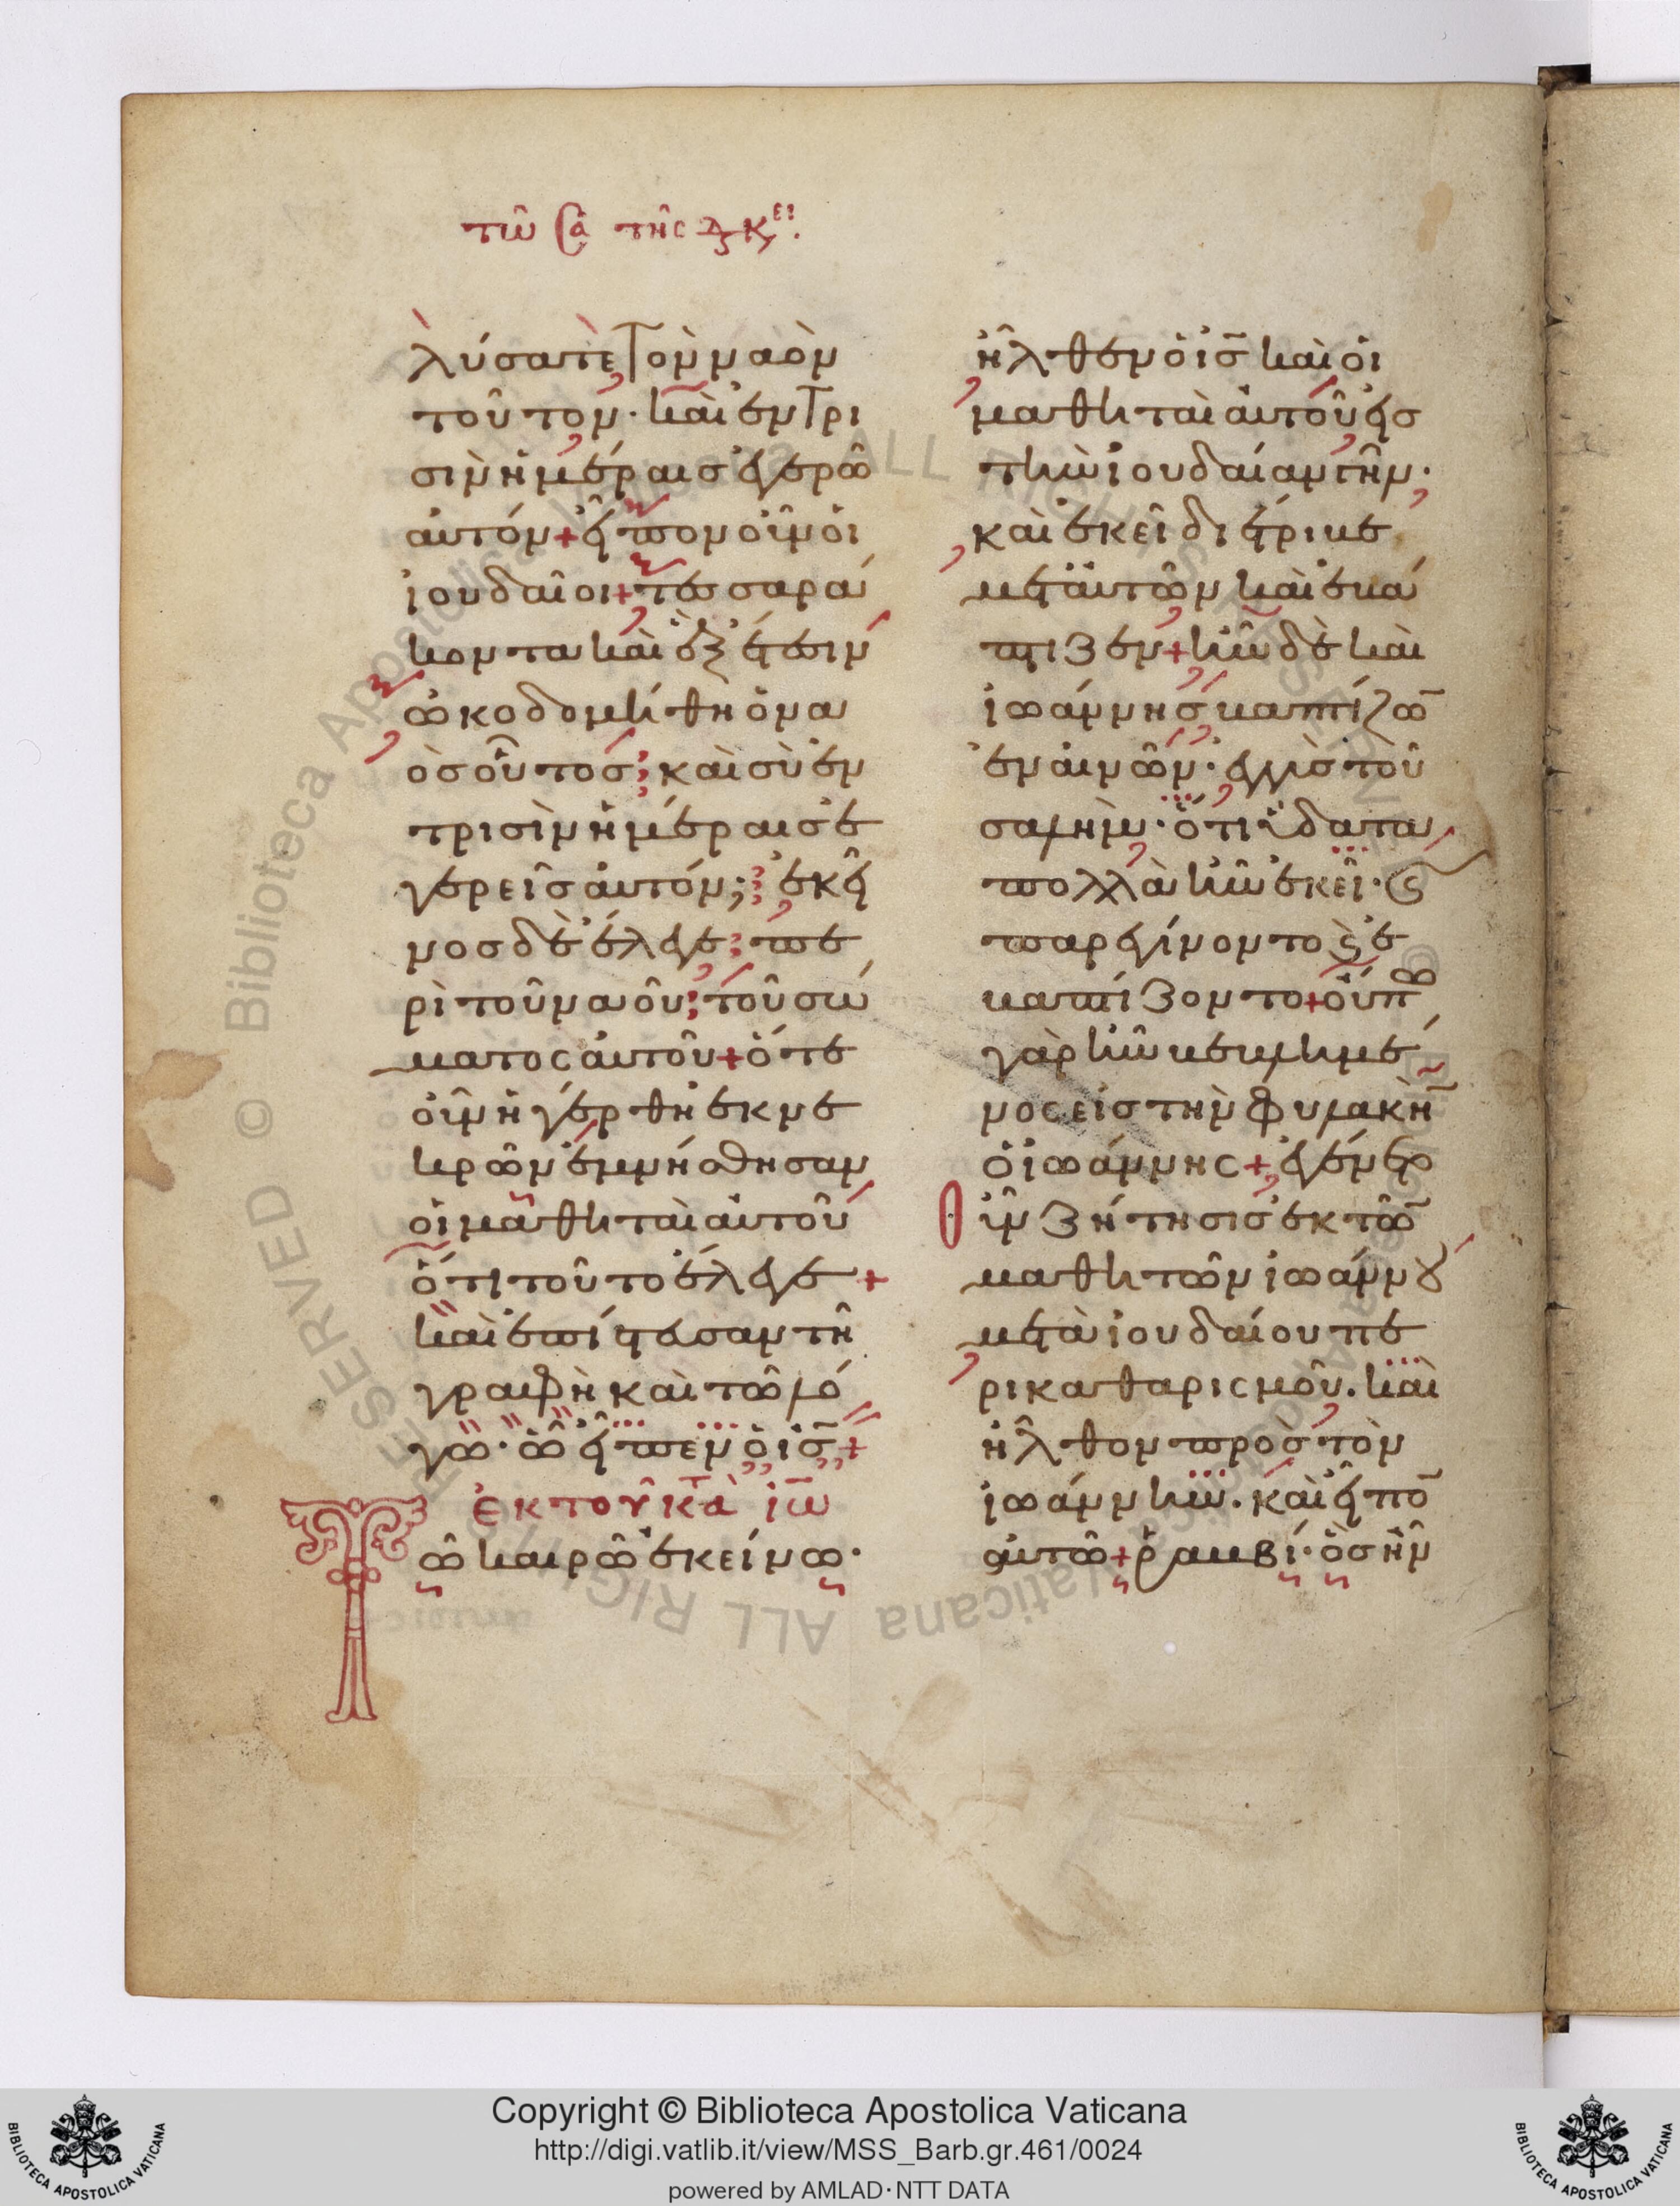 τῶ Σα τῆς διακει.
λύσατε τὸν ναὸν
τοῦτον· καὶ ἐν τρι
σὶν ἡμέραις ἐγερῶ
αὐτόν + εἶπον οὖν οἱ
ἰουδαῖοι + τεσσαρά
κοντα καὶ ἓξ ἔτεσιν
ὠκοδομήθη ὁ να
ὸς οὗτος; καὶ σὺ ἐν
τρισὶν ἡμέραις ἐ
γερεῖς αὐτόν; ἐκεῖ
νος δὲ ἔλεγε πε
ρὶ τοῦ ναοῦ τοῦ σώ
ματος αὐτοῦ + ὅτε
οὖν ἠγέρθη ἐκ νε
κρῶν ἐμνήσθησαν
οἱ μαθηταὶ αὐτοῦ
ὅτι τοῦτο ἔλεγε +
καὶ ἐπίστευσαν τῆ
γραφῇ καὶ τῶ λό
γω· ὧ εἶπεν ὁ ις̅ +
ἐκ τοῦ κατὰ ἰω̅
Τῶ καιρῶ ἐκείνω·
ἦλθεν ὁ ις̅ καὶ οἱ
μαθηταὶ αὐτοῦ εἰς
τὴν ἰουδαίαν γῆν·
καὶ ἐκεῖ διέτριβε
μετ' αὐτῶν καὶ ἐβά
πτιζεν + ἦν δὲ καὶ
ἰωάννης βαπτίζω̅
ἐν αἰνῶν· ἐγγὺς τοῦ
σαλήμ· ὅτι ὕδατα
πολλὰ ἦν ἐκεῖ· καὶ
παρεγίνοντο καὶ ἐ
βαπτίζοντο + οὔπω
γὰρ ἦν βεβλημέ
νος εἰς τὴν φυλακὴ̅
ὁ ἰωάννης + ἐγένετο
οὖν ζήτησις ἐκ τῶ̅
μαθητῶν ἰωάννου
μετὰ ἰουδαίου πε
ρὶ καθαρισμοῦ. καὶ
ἦλθον πρὸς τὸν
ἰωάννην. καὶ εἶπο̅
αὐτῶ + ῥαββί· ὃς ἦν
Copyright © Biblioteca Apostolica Vaticana
http://digi.vatlib.it/view/MSS_Barb.gr.461/0024
powered by AMLAD·NTT DATA
BIBLIOTECA APOSTOLICA VATICANA
BIBLIOTECA APOSTOLICA VATICANA